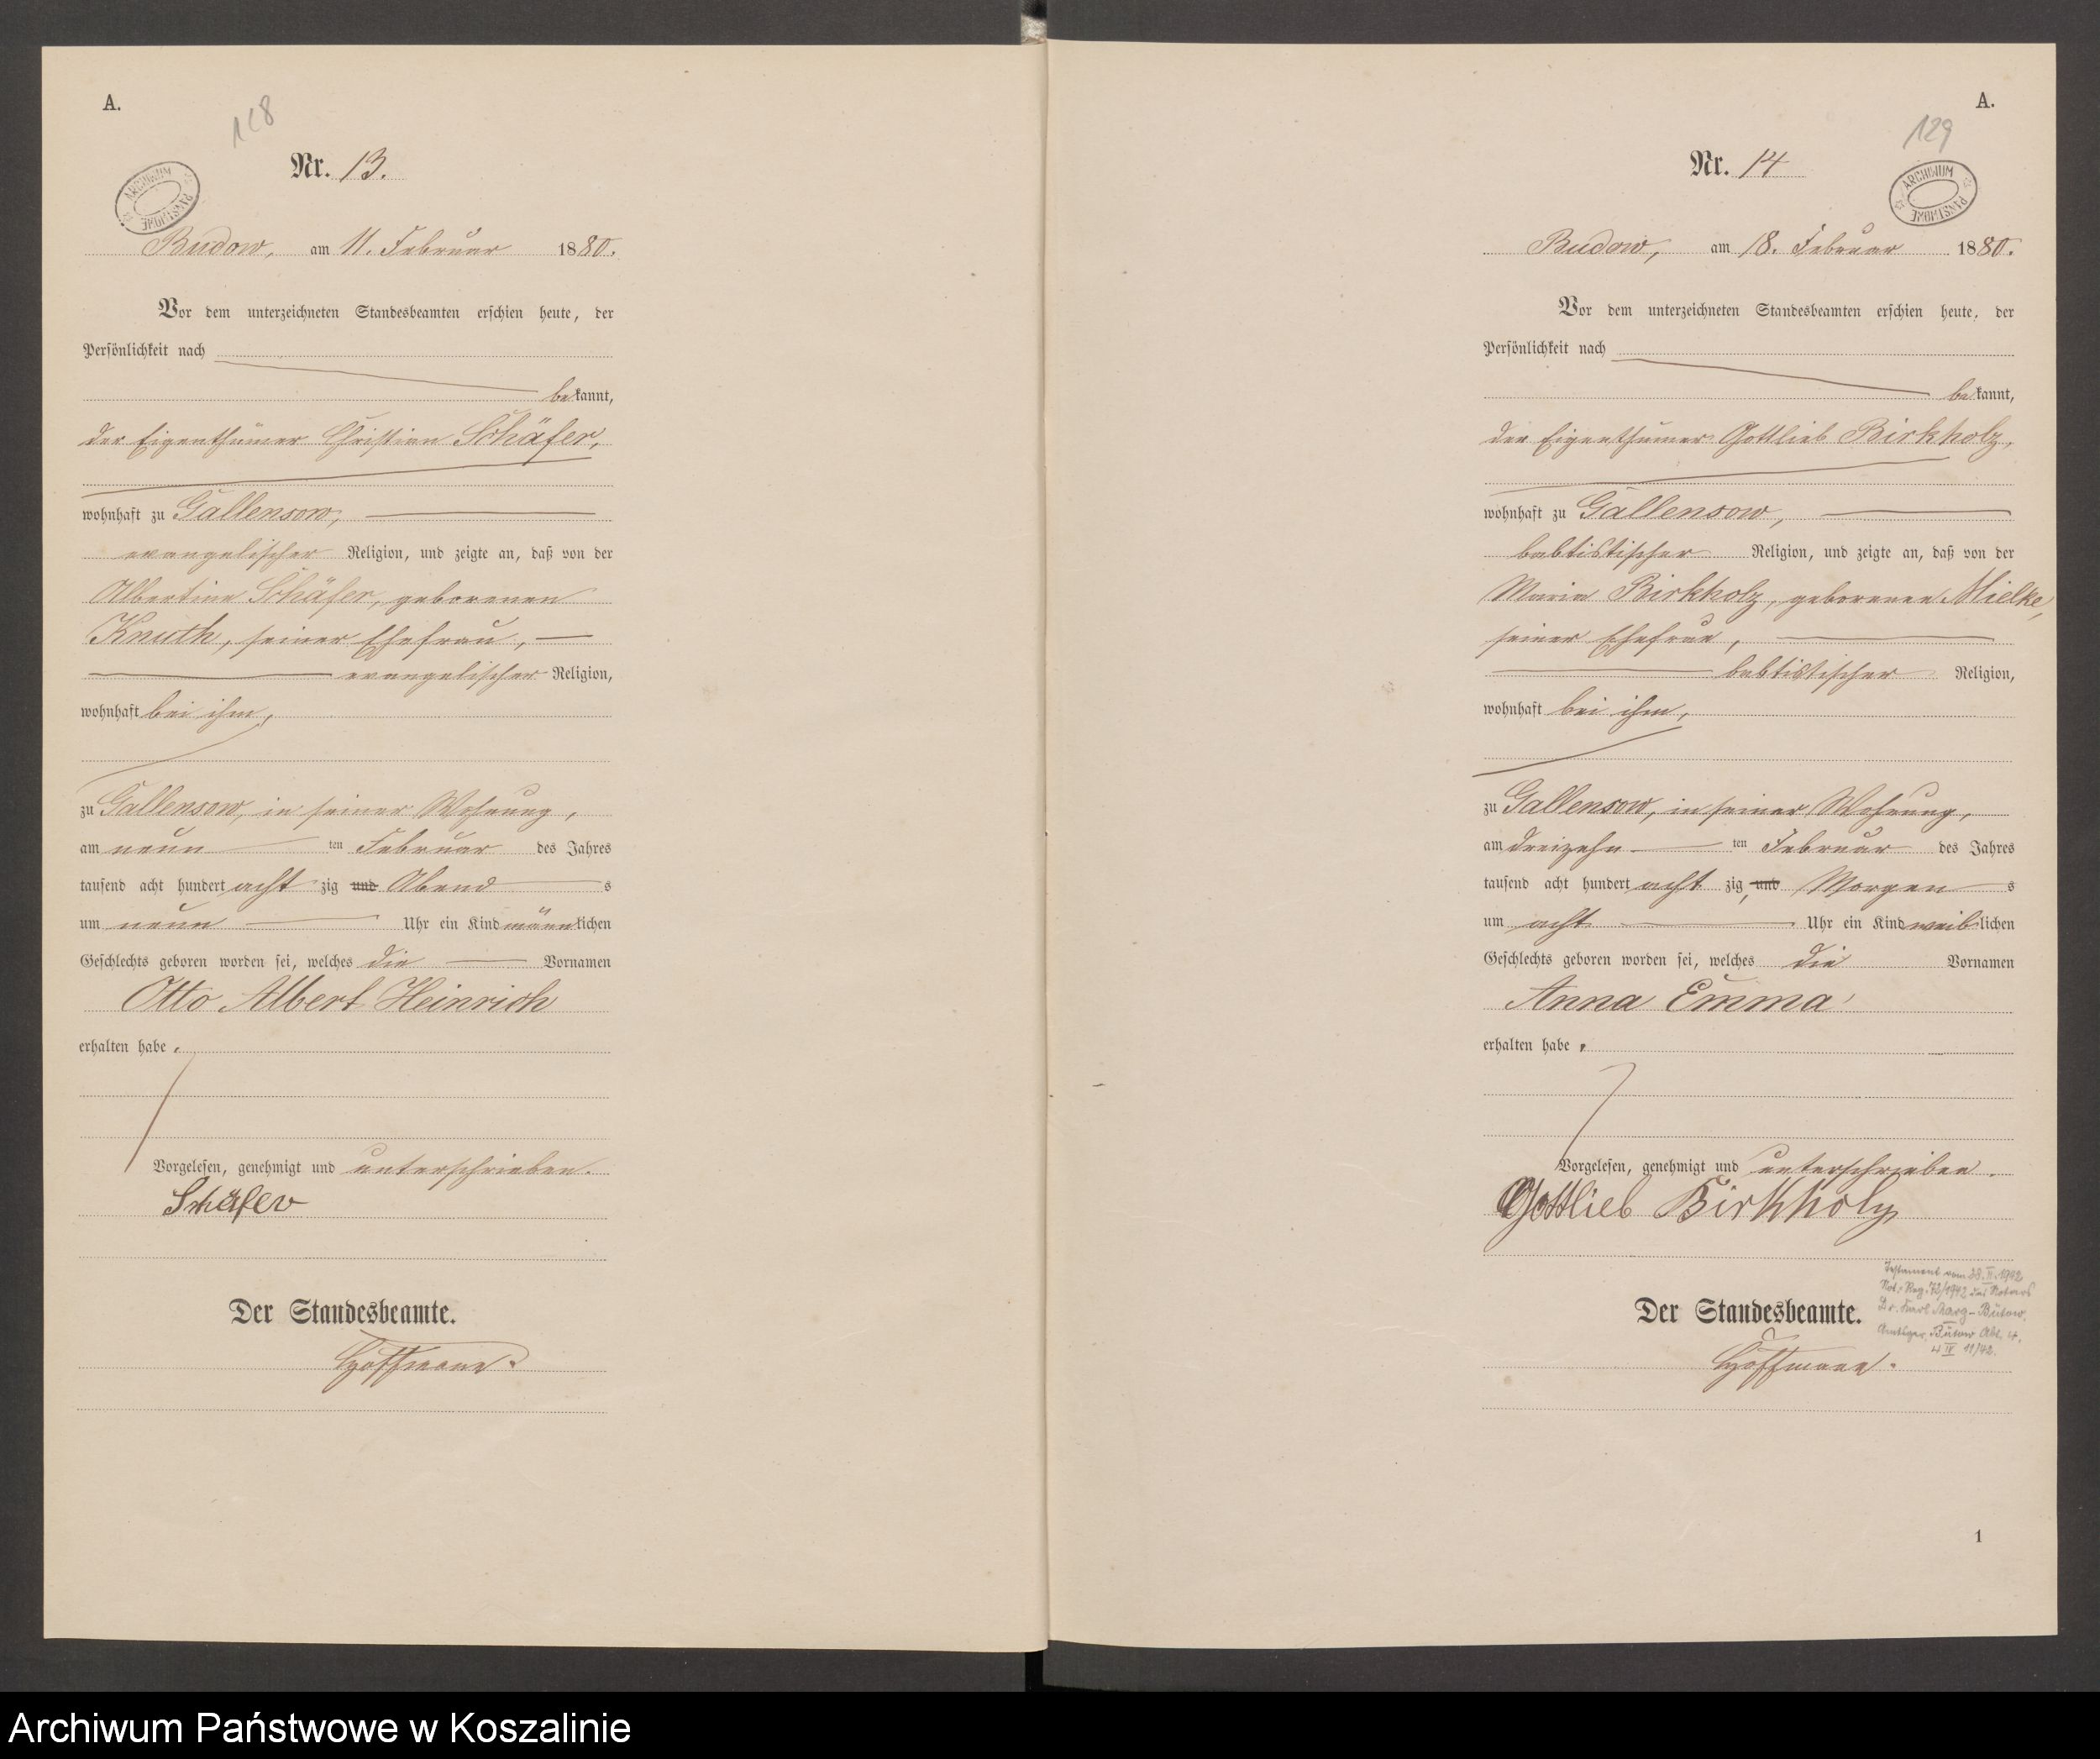 A.
128
Nr. 13.
ARCHIWUM PAŃSTWOWE
Budow, am 11. Februar 1880.
Vor dem unterzeichneten Standesbeamten erschien heute, der
Persönlichkeit nach
bekannt,
der Eigenthümer Christian Schäfer,
wohnhaft zu Gallensow,
evangelischer Religion, und zeigte an, daß von der
Albertine Schäfer, geborenen
Knuth, seiner Ehefrau,
evangelischer Religion,
wohnhaft bei ihm,
zu Gallensow, in seiner Wohnung,
am neun ten Februar des Jahres
tausend acht hundert acht zig und Abend s
um neun Uhr ein Kind männlichen
Geschlechts geboren worden sei, welches die Vornamen
Otto Albert Heinrich
erhalten habe.
Vorgelesen, genehmigt und unterschrieben.
Schäfer
Der Standesbeamte.
Hoffmann.
A.
129
Nr. 14
ARCHIWUM PAŃSTWOWE
Budow, am 18. Februar 1880.
Vor dem unterzeichneten Standesbeamten erschien heute, der
Persönlichkeit nach
bekannt,
der Eigenthümer Gottlieb Birkholz,
wohnhaft zu Gallensow,
babtistischer Religion, und zeigte an, daß von der
Marie Birkholz, geborenen Mielke,
seiner Ehefrau,
babtistischer Religion,
wohnhaft bei ihm,
zu Gallensow, in seiner Wohnung,
am dreizehn ten Februar des Jahres
tausend acht hundert acht zig, und Morgen s
um acht Uhr ein Kind weiblichen
Geschlechts geboren worden sei, welches die Vornamen
Anna Emma
erhalten habe.
Vorgelesen, genehmigt und unterschrieben.
Gottlieb Birkholz
Testament vom 28. II. 1942
Not. Reg. 72/1942 des Notars
Dr. Karl Marg-Bütow.
Amtsger. Bütow Abt. 4.
4 IV 11/42.
Der Standesbeamte.
Hoffmann.
1
Archiwum Państwowe w Koszalinie